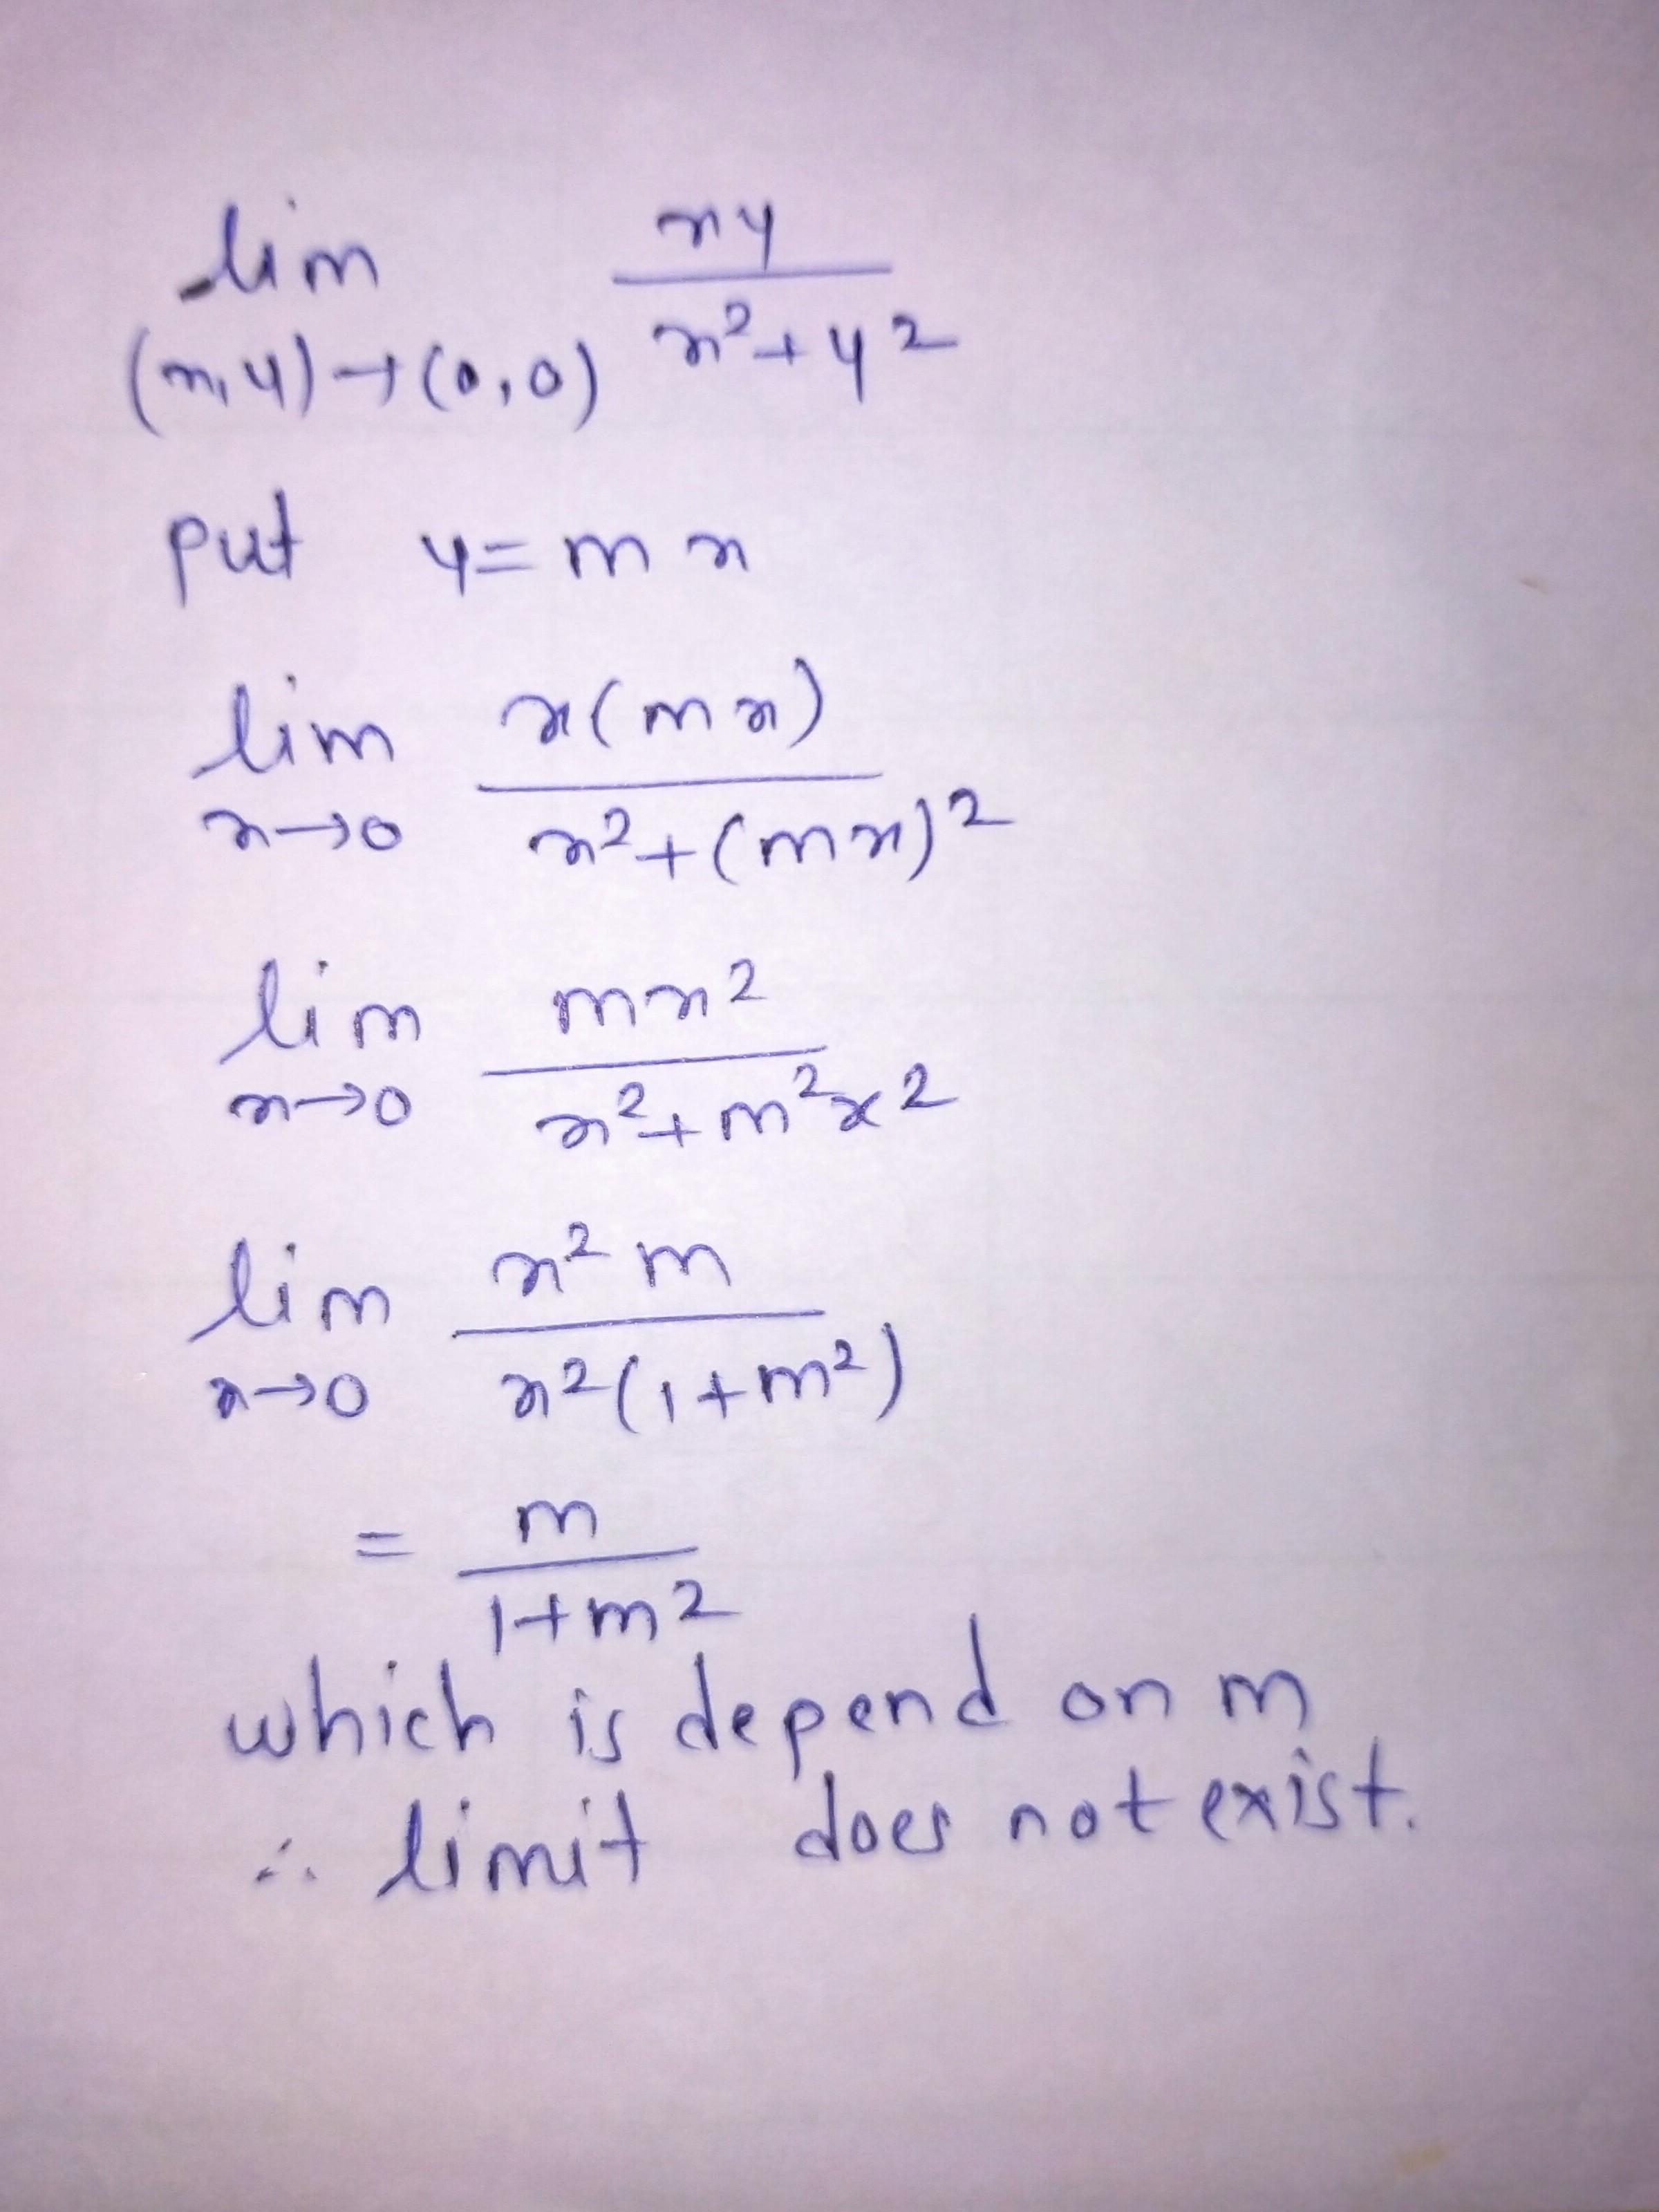 lim xy / x²+y²
(x,y)→(0,0)
put y=mx
lim x(mx) / x²+(mx)²
x→0
lim mx² / x²+m²x²
x→0
lim x²m / x²(1+m²)
x→0
= m / 1+m²
which is depend on m
∴ limit does not exist.